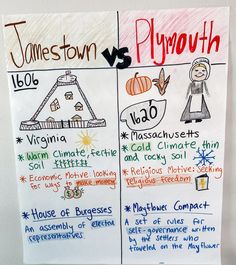 Jamestown vs Plymouth
1606
1620
* Virginia
* Warm Climate, fertile
Soil
* Economic Motive: looking
for ways to make money
* House of Burgesses
An assembly of elected
representatives
* Massachusetts
* Cold Climate, thin
and rocky soil
* Religious Motive: Seeking
religious freedom
* Mayflower Compact
A set of rules for
self-governance written
by the settlers who
traveled on the Mayflower